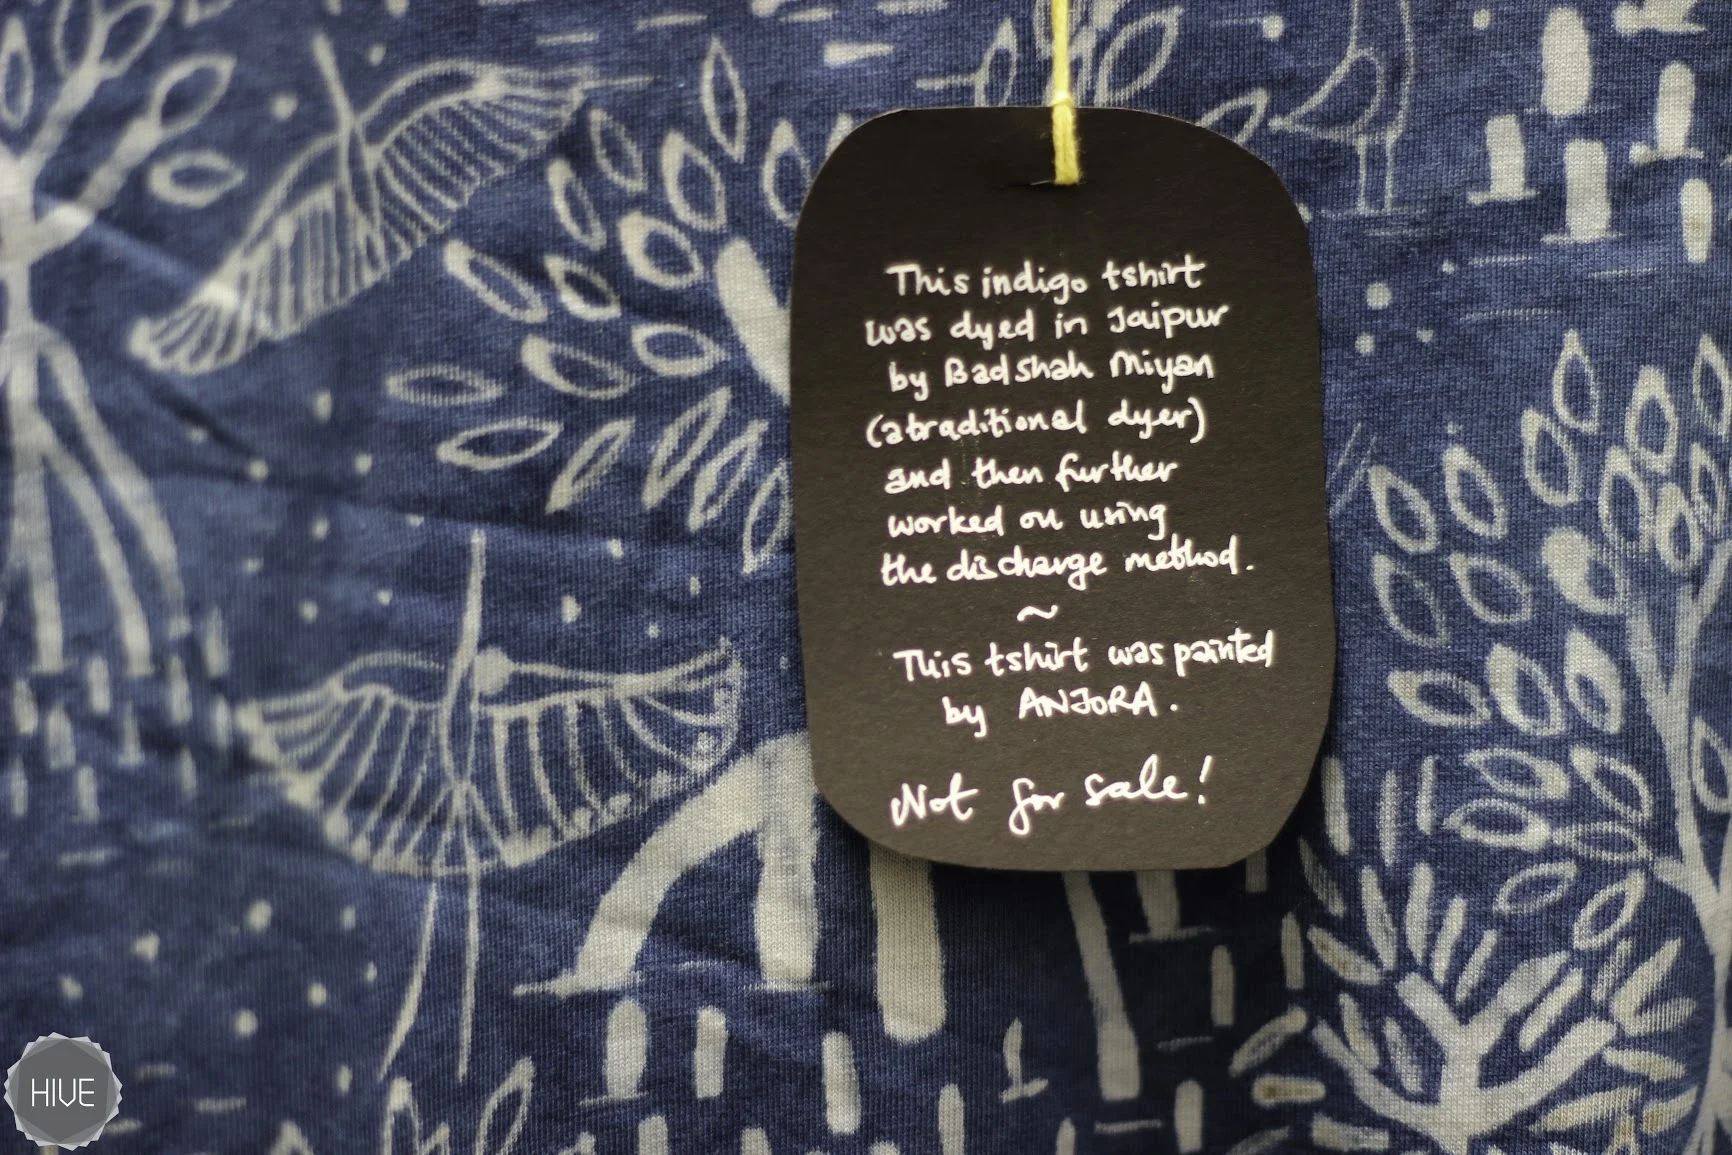 This indigo tshirt
was dyed in Jaipur
by Badshah Miyan
(a traditional dyer)
and then further
worked on using
the discharge method.
~
This tshirt was painted
by ANJORA.
Not for sale!
HIVE